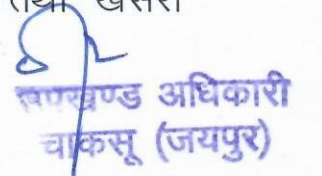 तथा खसरा
उपखण्ड अधिकारी
चाकसू (जयपुर)